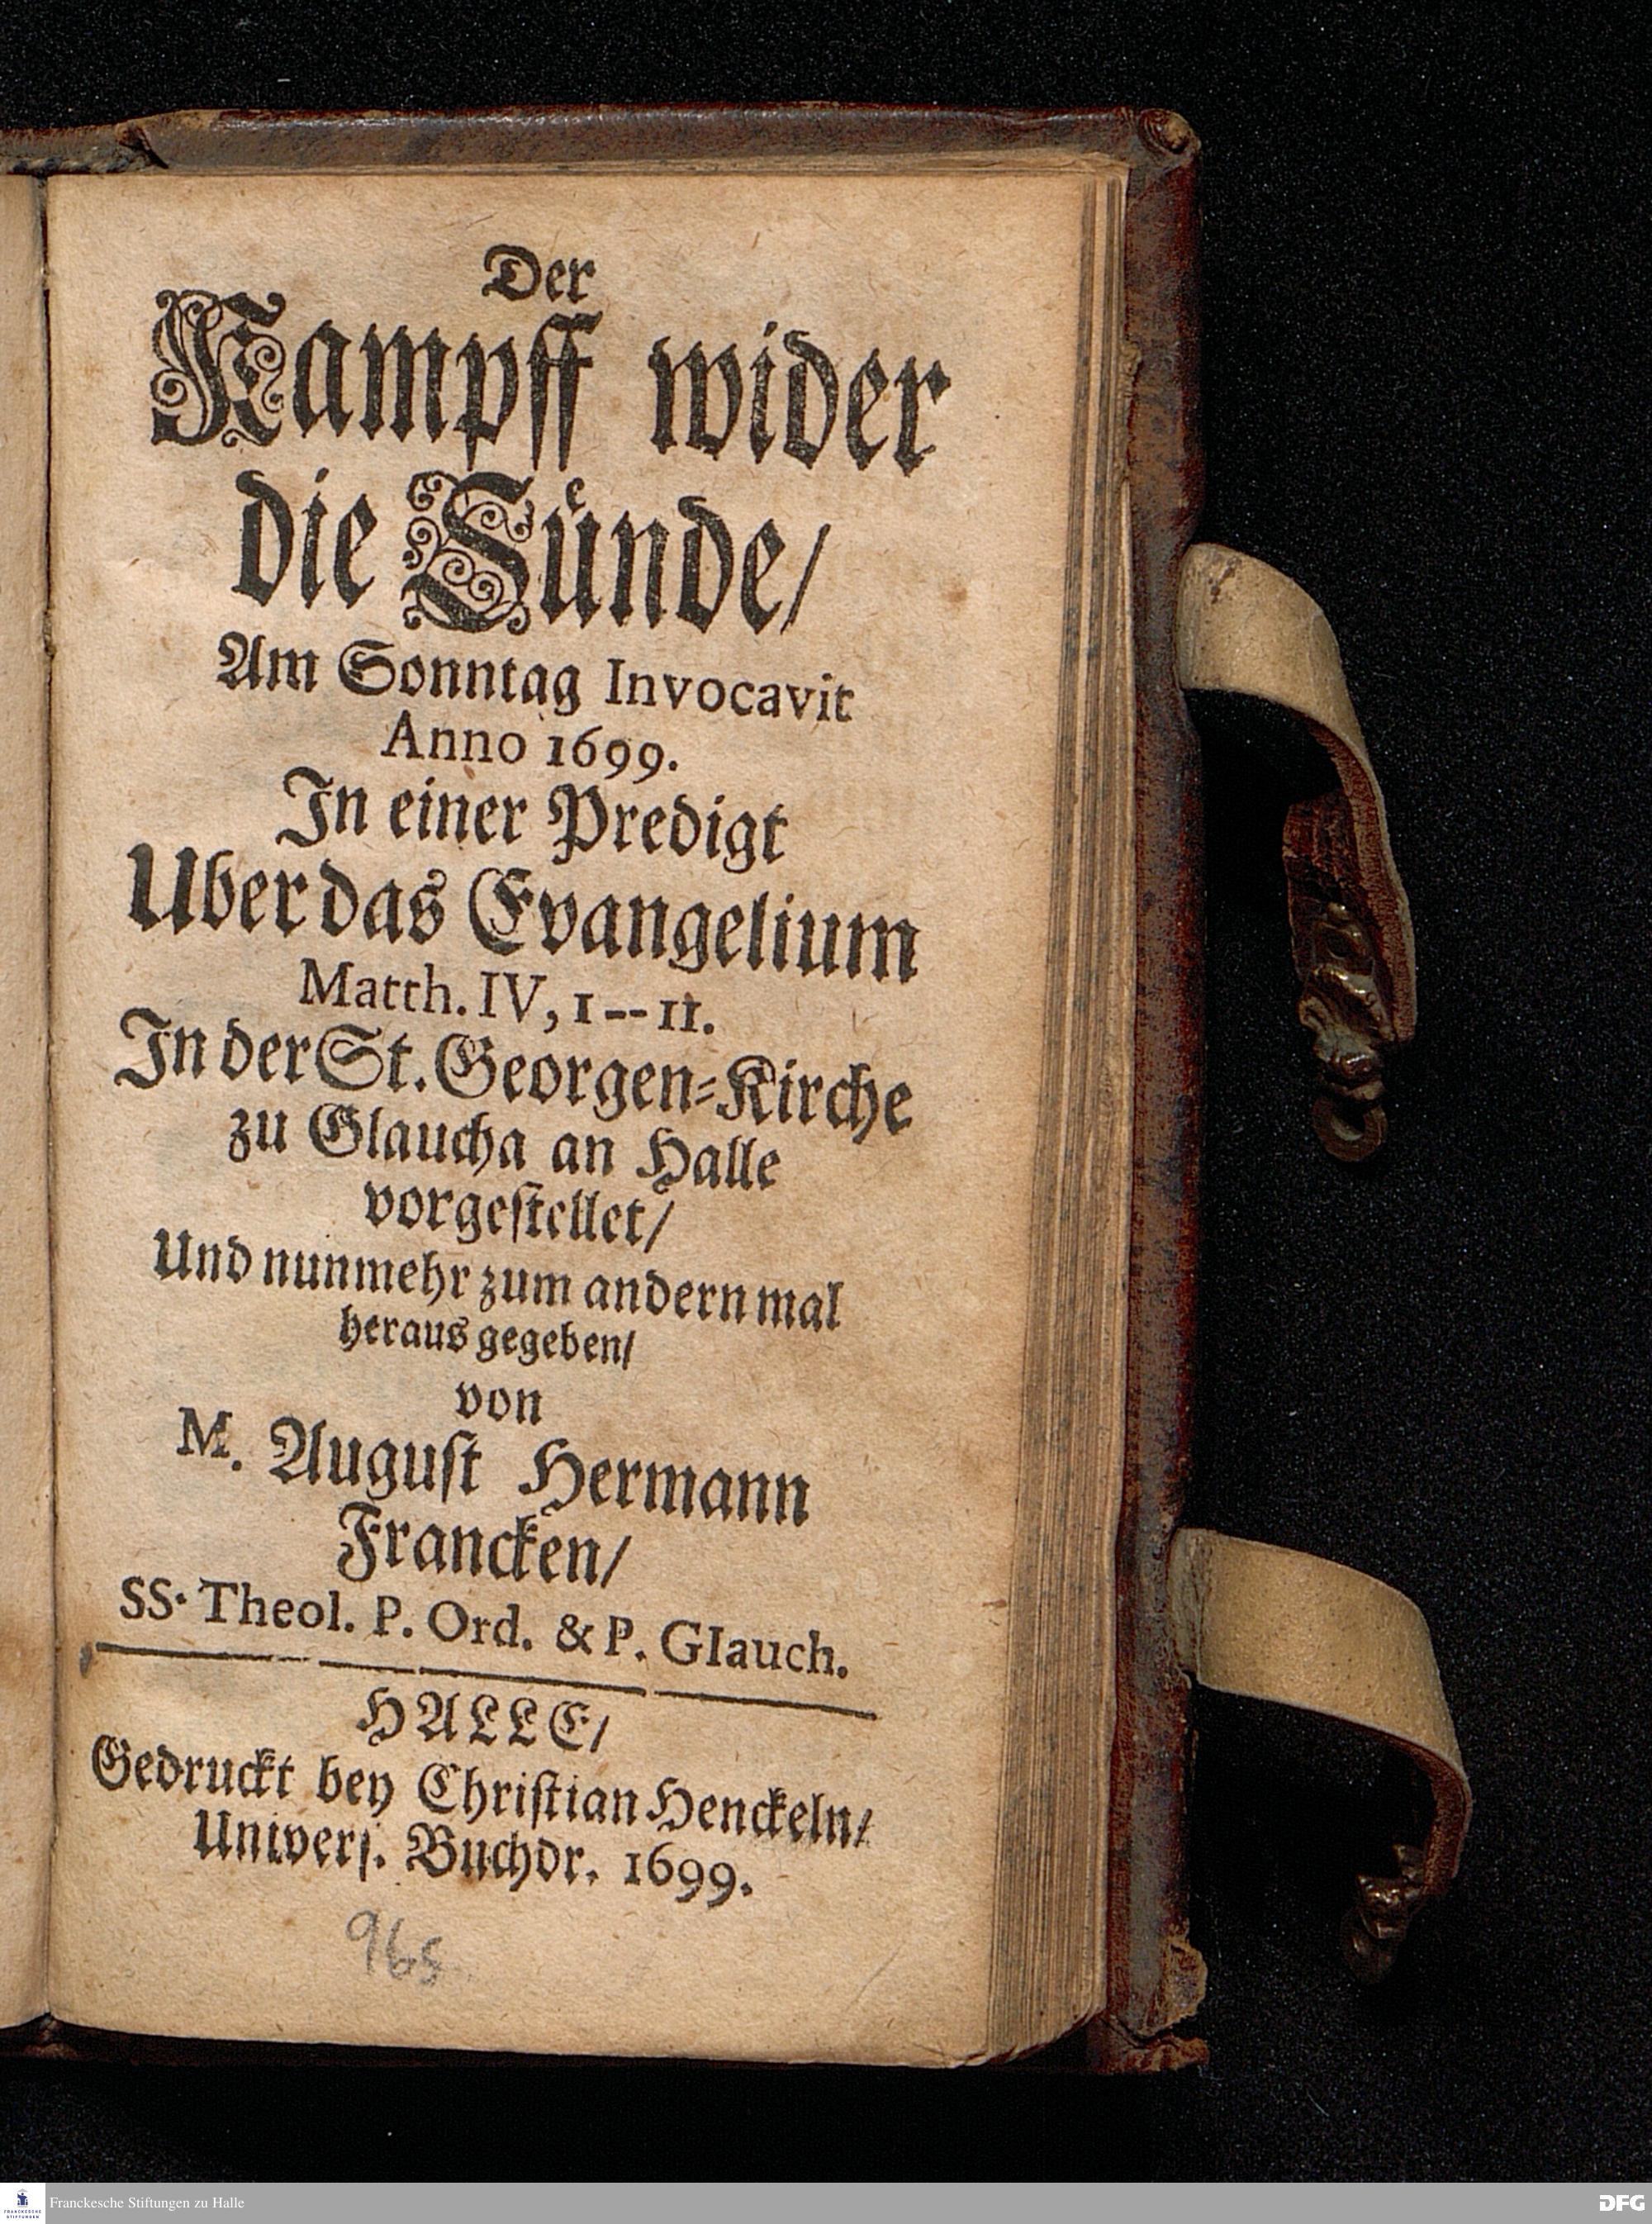 Der
Kampff wider
die Suͤnde/
Am Sonntag Invocavit
Anno 1699.
In einer Predigt
Uber das Evangelium
Matth. IV, 1--11.
In der St. Georgen-Kirche
zu Glaucha an Halle
vorgestellet/
Und nunmehr zum andern mal
heraus gegeben/
von
M. August Hermann
Francken/
SS. Theol. P. Ord. & P. Glauch.
HALLE/
Gedruckt bey Christian Henckeln/
Univers. Buchdr. 1699.
965
Franckesche Stiftungen zu Halle
FRANCKESCHE
STIFTUNGEN
DFG